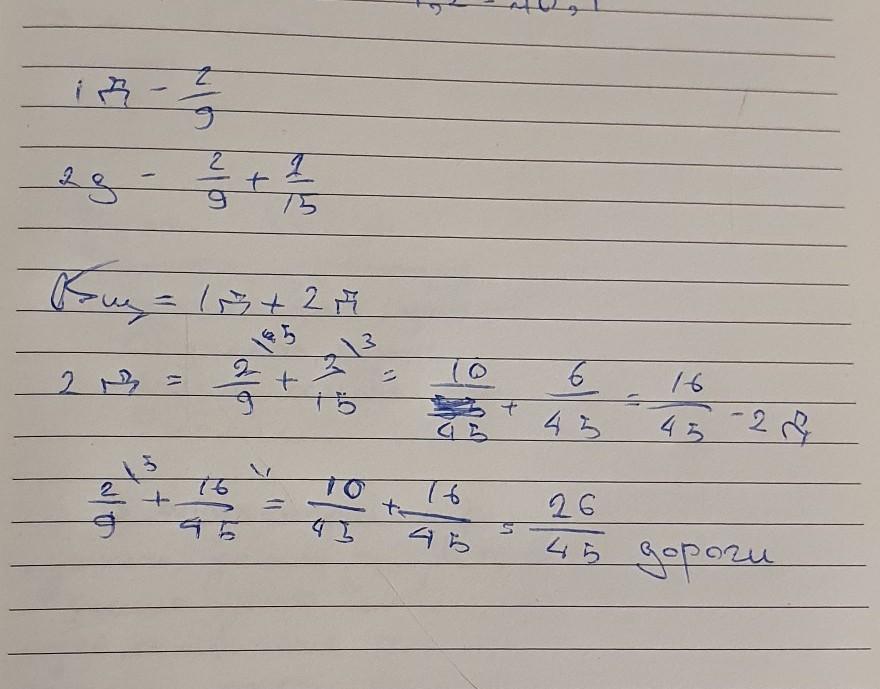 1 д - 2/9
2 д - 2/9 + 2/15
= 1 д + 2 д
2 д = 2/9 \5 + 2/15 \3 = 10/45 + 6/45 = 16/45 - 2 д
2/9 \5 + 16/45 \1 = 10/45 + 16/45 = 26/45 дороги